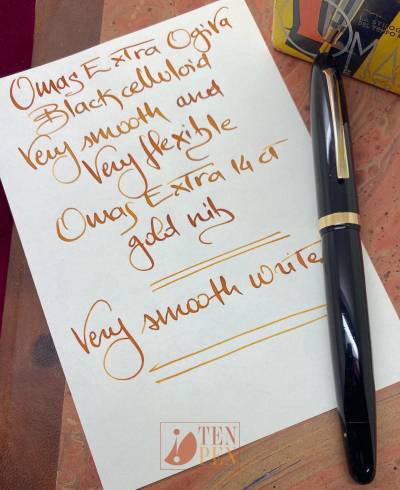 Omas Extra Ogiva
Black celluloid
Very smooth and
Very flexible
Omas Extra 14 ct
gold nib
Very smooth write
TEN
PEN
OMA